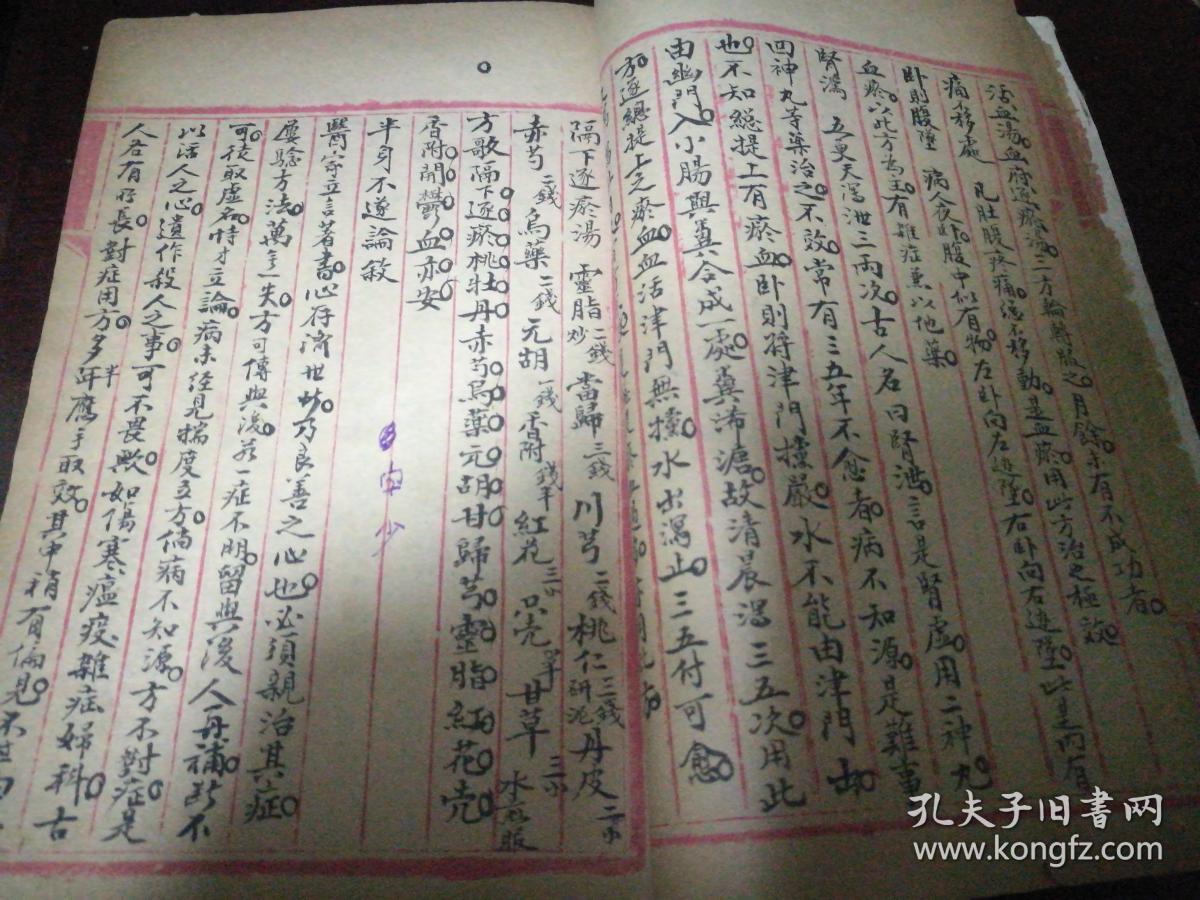 活血湯血府逐瘀湯二方輪轉服之月餘未有不成功者
痛不移處 凡肚腹疼痛總不移動是血瘀用此方治之極效
臥則腹墜 病人夜臥腹中似有物左臥向左邊墜右臥向右邊墜此是內有
血瘀以此方為主有雜症兼以他藥
腎瀉 五更天瀉泄三兩次古人名曰腎泄言是腎虛用二神丸
四神丸等藥治之不效常有三五年不愈者病不知源是難事
也不知總提上有瘀血臥則將津門擋嚴水不能由津門出
由幽門入小腸與糞合成一處糞沸溏故清晨瀉三五次用此
方逐總提上之瘀血血活津門無擋水出瀉止三五付可愈
隔下逐瘀湯 靈脂二錢炒 當歸三錢 川芎二錢 桃仁三錢研泥 丹皮二
赤芍二錢 烏藥二錢 元胡一錢 香附錢半 紅花三 只壳 甘草三 水煎服
方歌隔下逐瘀桃牡丹赤芍烏藥元胡甘歸芎靈脂紅花壳
香附開鬱血亦安
半身不遂論敘
醫家立言著書心存濟世此乃良善之心也必須親治其症
屢驗方法萬無一失方可傳與後若一症不明留與後人再補斷不
可徒取虛名恃才立論病未經見揣度立方倘病不知源方不對症是
以活人之心遺作殺人之事可不畏歟如傷寒瘟疫雜症婦科古
人各有所長對症用方多半應手取效其中稍有偏見不過
孔夫子旧书网
www.kongfz.com